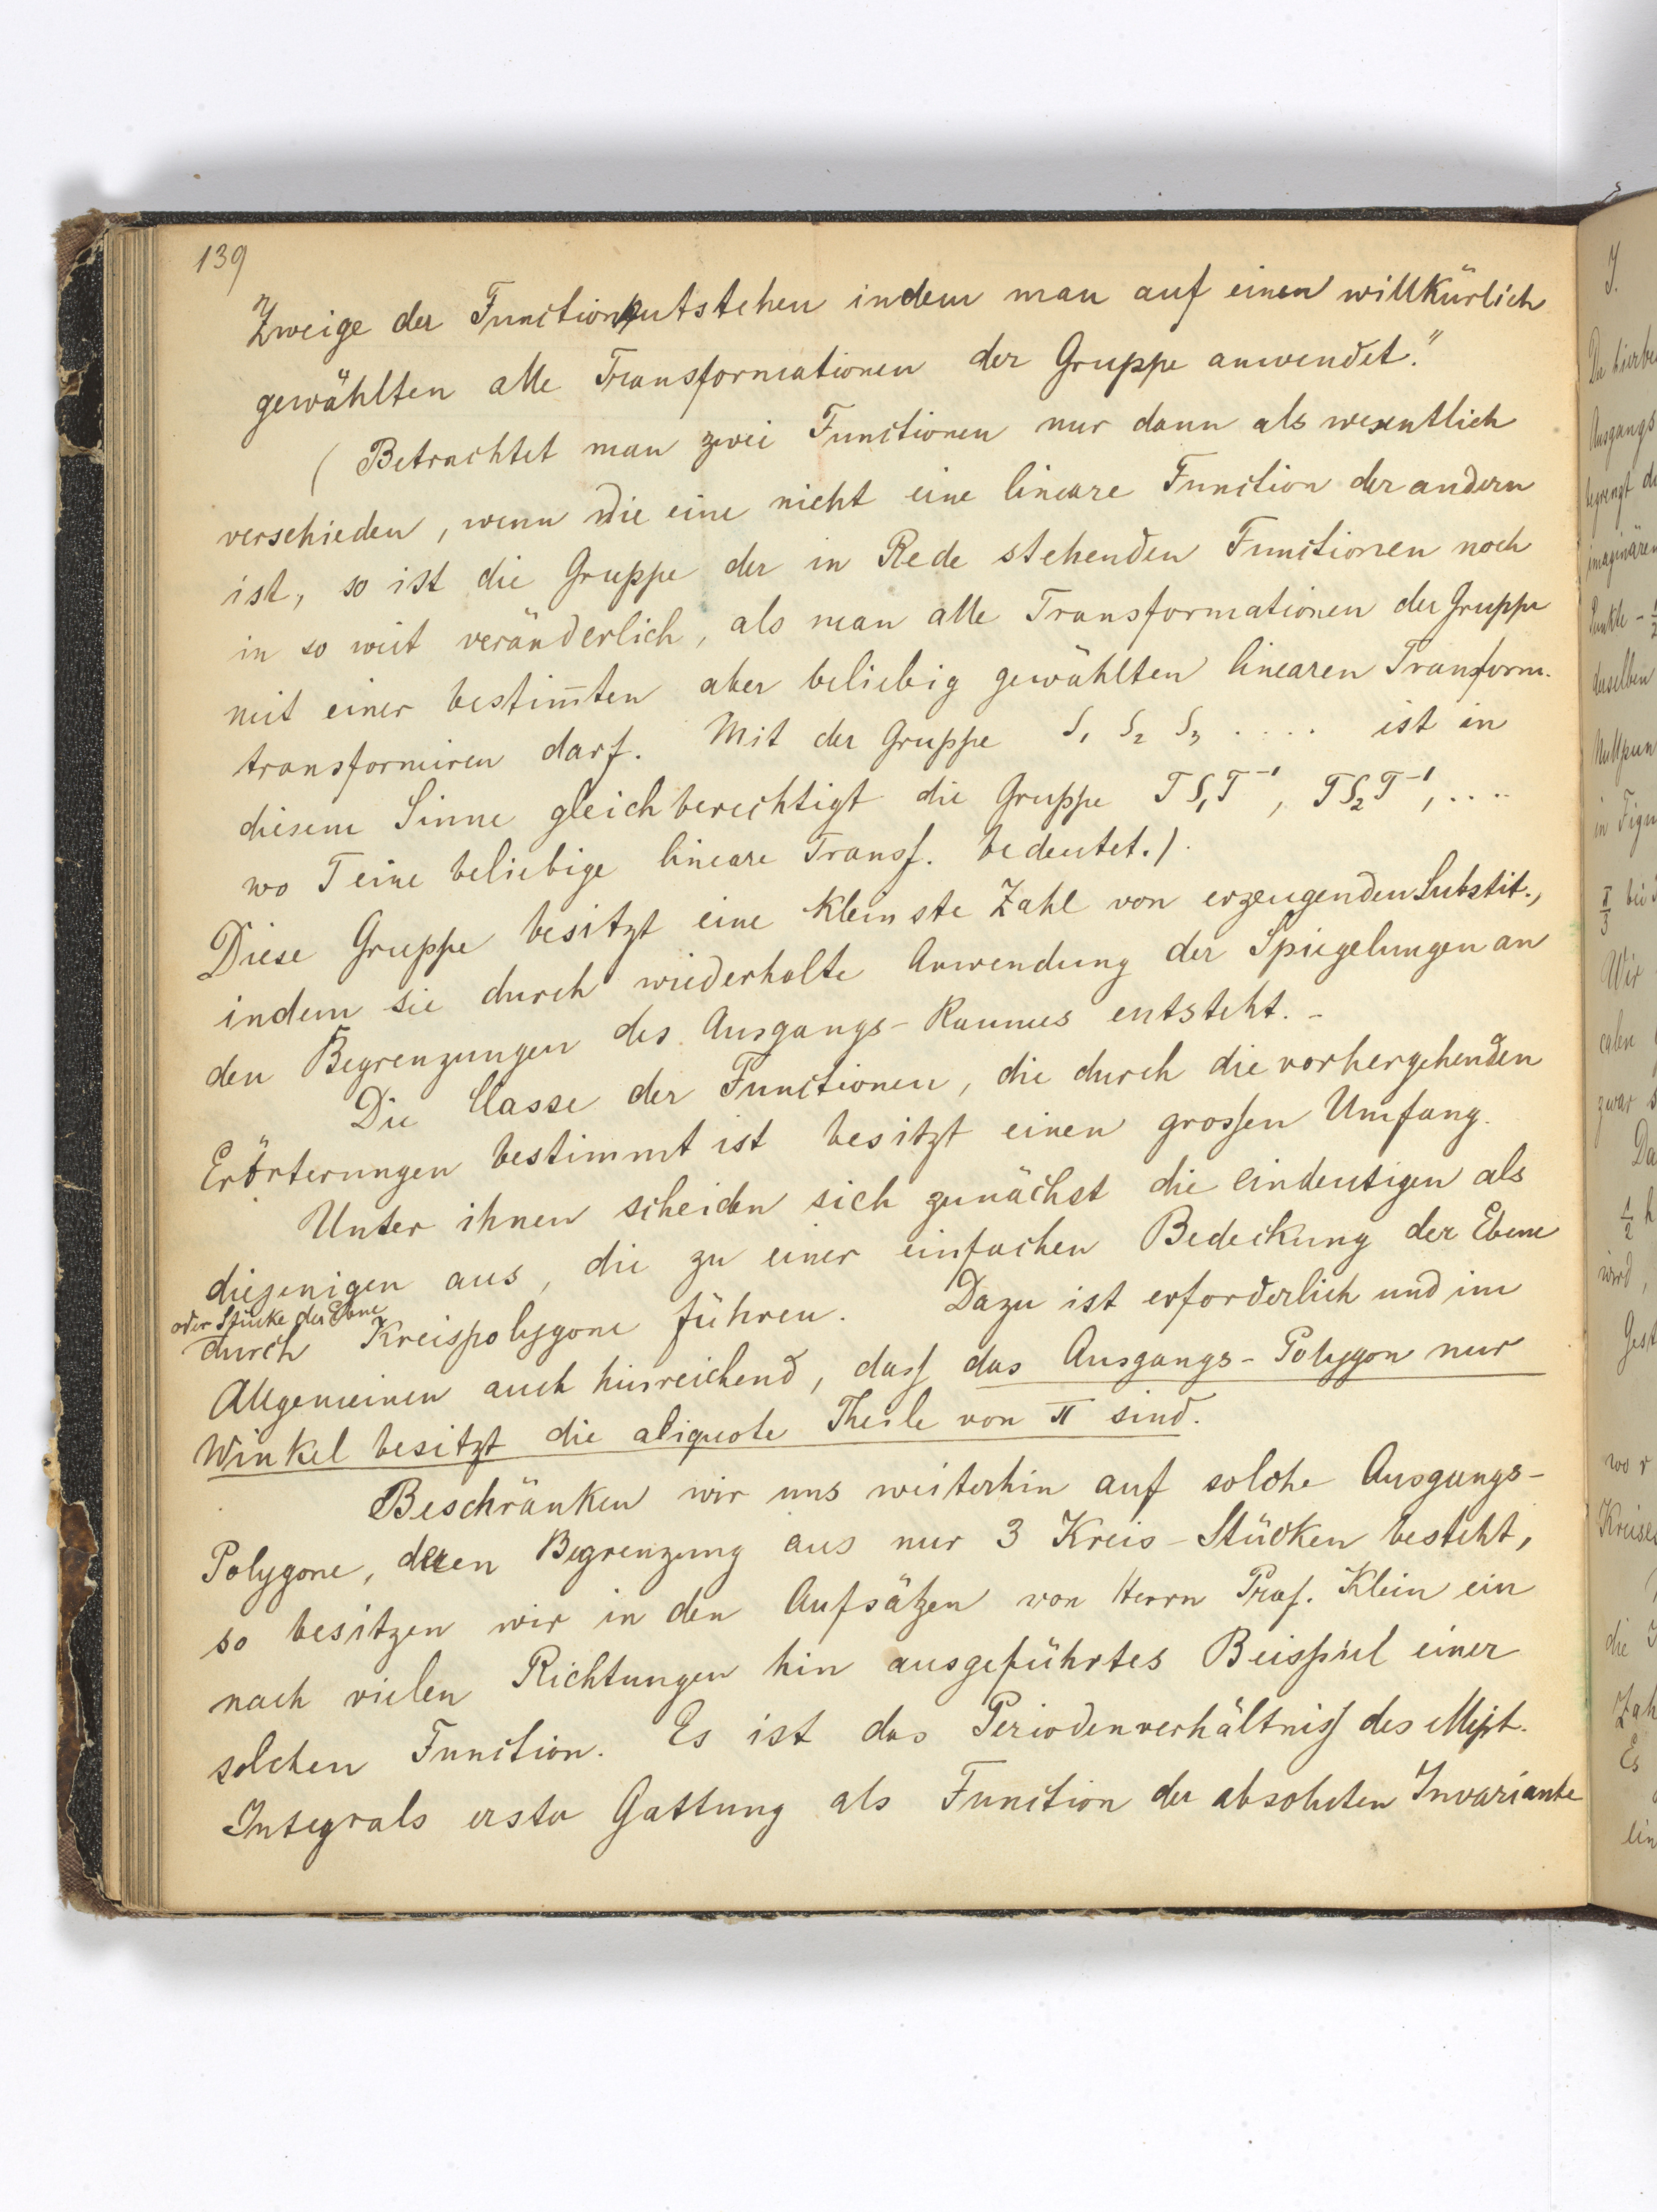 139
Zweige der Function entstehen indem man auf einen willkürlich
gewählten alle Transformationen der Gruppe anwendet."
(Betrachtet man zwei Functionen nur dann als wesentlich
verschieden, wenn die eine nicht eine lineare Function der andern
ist, so ist die Gruppe der in Rede stehenden Functionen noch
in so weit veränderlich, als man alle Transformationen der Gruppe
mit einer bestim̄ten aber beliebig gewählten linearen Transform.
transformiren darf. Mit der Gruppe S₁ S₂ S₃ .... ist in
diesem Sinne gleichberechtigt die Gruppe TS₁T⁻¹, TS₂T⁻¹, ....
wo T eine beliebige lineare Transf. bedeutet.)
Diese Gruppe besitzt eine kleinste Zahl von erzeugenden Substit.,
indem sie durch wiederholte Anwendung der Spiegelungen an
den Begrenzungen des Ausgangs-Raumes entsteht. -
Die Classe der Functionen, die durch die vorhergehenden
Erörterungen bestimmt ist besitzt einen grossen Umfang.
Unter ihnen scheiden sich zunächst die eindeutigen als
diejenigen aus, die zu einer einfachen Bedeckung der Ebene
oder Stücke der Ebene
durch Kreispolygone führen. Dazu ist erforderlich und im
Allgemeinen auch hinreichend, dass das Ausgangs-Polygon nur
Winkel besitzt die aliquote Theile von π sind.
Beschränken wir uns weiterhin auf solche Ausgangs-
Polygone, deren Begrenzung aus nur 3 Kreis-Stücken besteht,
so besitzen wir in den Aufsätzen von Herrn Prof. Klein ein
nach vielen Richtungen hin ausgeführtes Beispiel einer
solchen Function. Es ist das Periodenverhältniss des ellipt.
Integrals erster Gattung als Function der absoluten Invariante